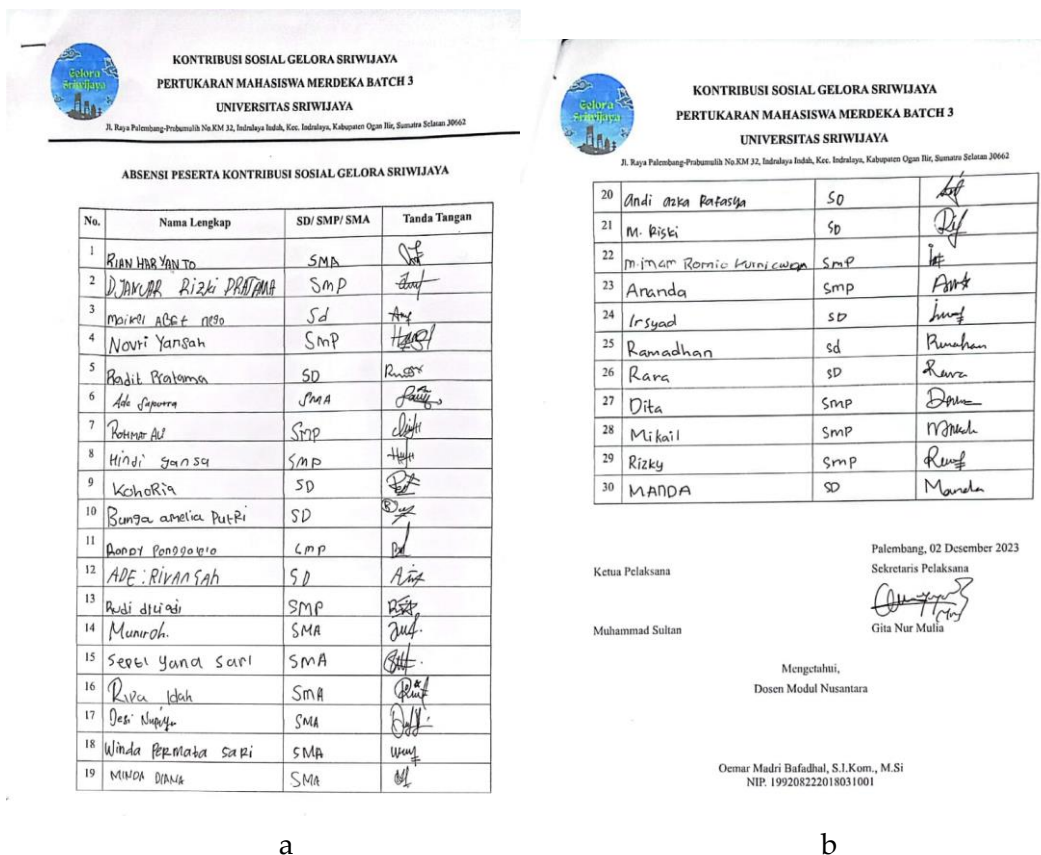 Gelora
Sriwijaya
KONTRIBUSI SOSIAL GELORA SRIWIJAYA
PERTUKARAN MAHASISWA MERDEKA BATCH 3
UNIVERSITAS SRIWIJAYA
Jl. Raya Palembang-Prabumulih No.KM 32, Indralaya Indah, Kec. Indralaya, Kabupaten Ogan Ilir, Sumatra Selatan 30662
ABSENSI PESERTA KONTRIBUSI SOSIAL GELORA SRIWIJAYA
No. Nama Lengkap SD/ SMP/ SMA Tanda Tangan
1 RIAN HARYANTO SMA
2 DJANUAR Rizki PRATAMA SMP
3 Sd
4 Novri Yansah SMP
5 Radit Pratama SD
6 Ade Saputra SMA
7 ROHMAT ALI SMP
8 Hindi yansa SMP
9 KohoRia SD
10 Bunga amelia PutRi SD
11 SMP
12 ADE : RIVANSAh SD
13 Rudi SMP
14 Muniroh. SMA
15 Septi yana sari SMA
16 Riva Idah SMA
17 Desi SMA
18 Winda PERmata saRi SMA
19 MINDA DIANA SMA
a
Gelora
Sriwijaya
KONTRIBUSI SOSIAL GELORA SRIWIJAYA
PERTUKARAN MAHASISWA MERDEKA BATCH 3
UNIVERSITAS SRIWIJAYA
Jl. Raya Palembang-Prabumulih No.KM 32, Indralaya Indah, Kec. Indralaya, Kabupaten Ogan Ilir, Sumatra Selatan 30662
20 Andi azka Rafasya SD
21 M. Riski SD
22 M.imam Romio kurniawan SMP
23 Ananda SMP
24 Irsyad SD
25 Ramadhan sd
26 Rara SD
27 Dita SMP
28 Mikail SMP
29 Rizky SMP
30 MANDA SD Manda
Palembang, 02 Desember 2023
Ketua Pelaksana Sekretaris Pelaksana
Muhammad Sultan Gita Nur Mulia
Mengetahui,
Dosen Modul Nusantara
Oemar Madri Bafadhal, S.I.Kom., M.Si
NIP. 199208222018031001
b